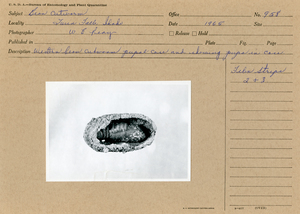 U. S. D. A.—Bureau of Entomology and Plant Quarantine
Subject Bean Cutworm Office No. 958
Locality Twin Falls, Idaho Date 1955 Size
Photographer W. E. Release Hold
Published in
Description Western bean cutworm pupal case cut showing pupa in case
Film Strips
2 & 3